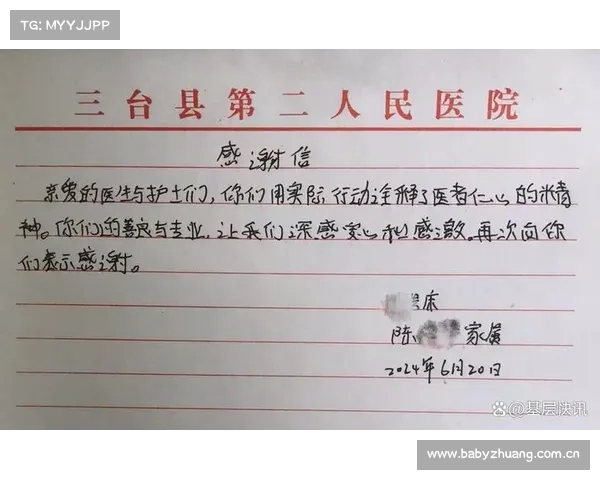 TG: MYYJJPP
三台县第二人民医院
感谢信
亲爱的医生与护士们，你们用实际行动诠释了医者仁心的精
神。你们的善良与专业，让我们深感安心和感激。再次向你
们表示感谢。
床
陈 家属
2024年6月20日
百家号@基层快讯
www.babyzhuang.com.cn